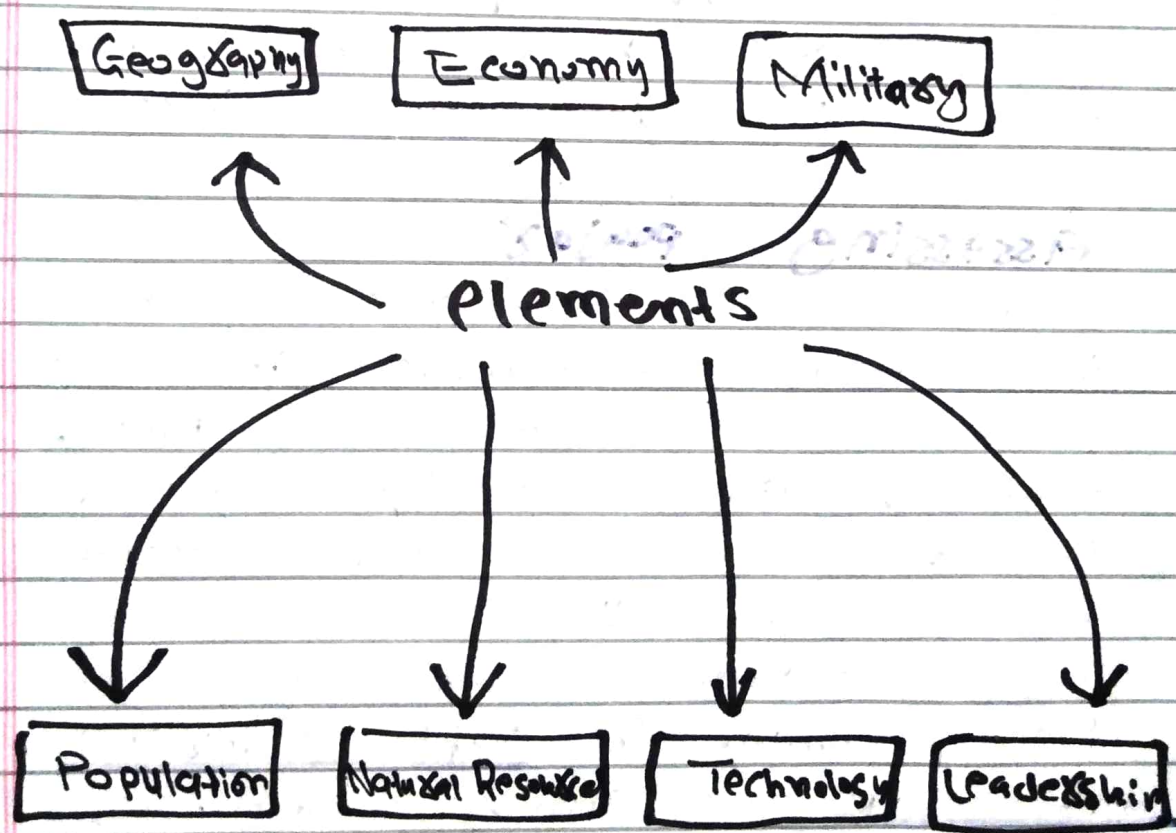 Geography Economy Military
elements
Population Natural Resource Technology Leadership